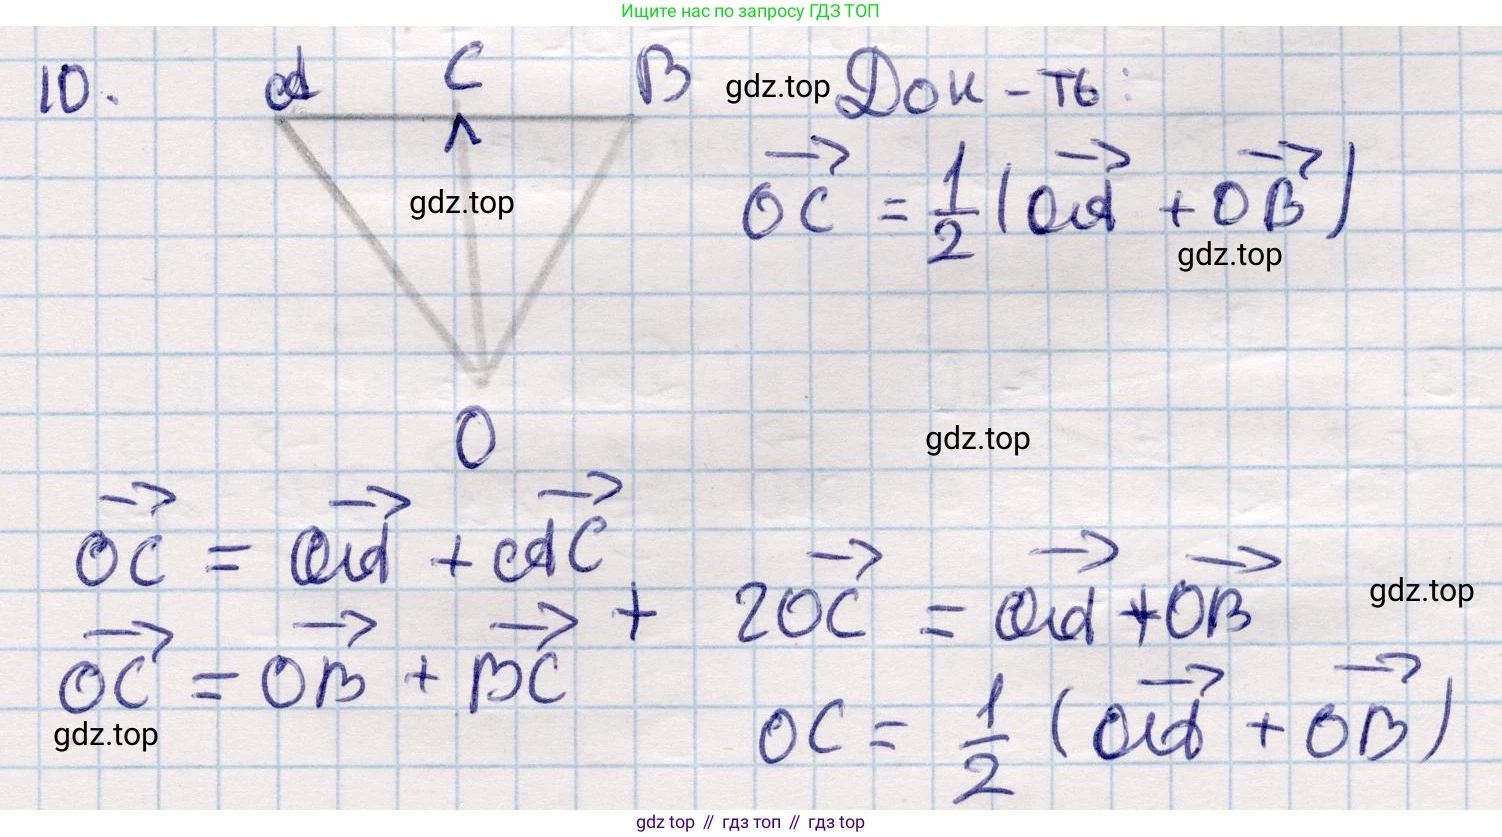 Ищите нас по запросу ГДЗ ТОП
10. A C B gdz.top Док-ть:
gdz.top
OC = 1/2 (OA + OB)
gdz.top
O
gdz.top
OC = OA + AC
OC = OB + BC
+
gdz.top
2OC = OA + OB
gdz.top
OC = 1/2 (OA + OB)
gdz top // гдз топ // гдз top